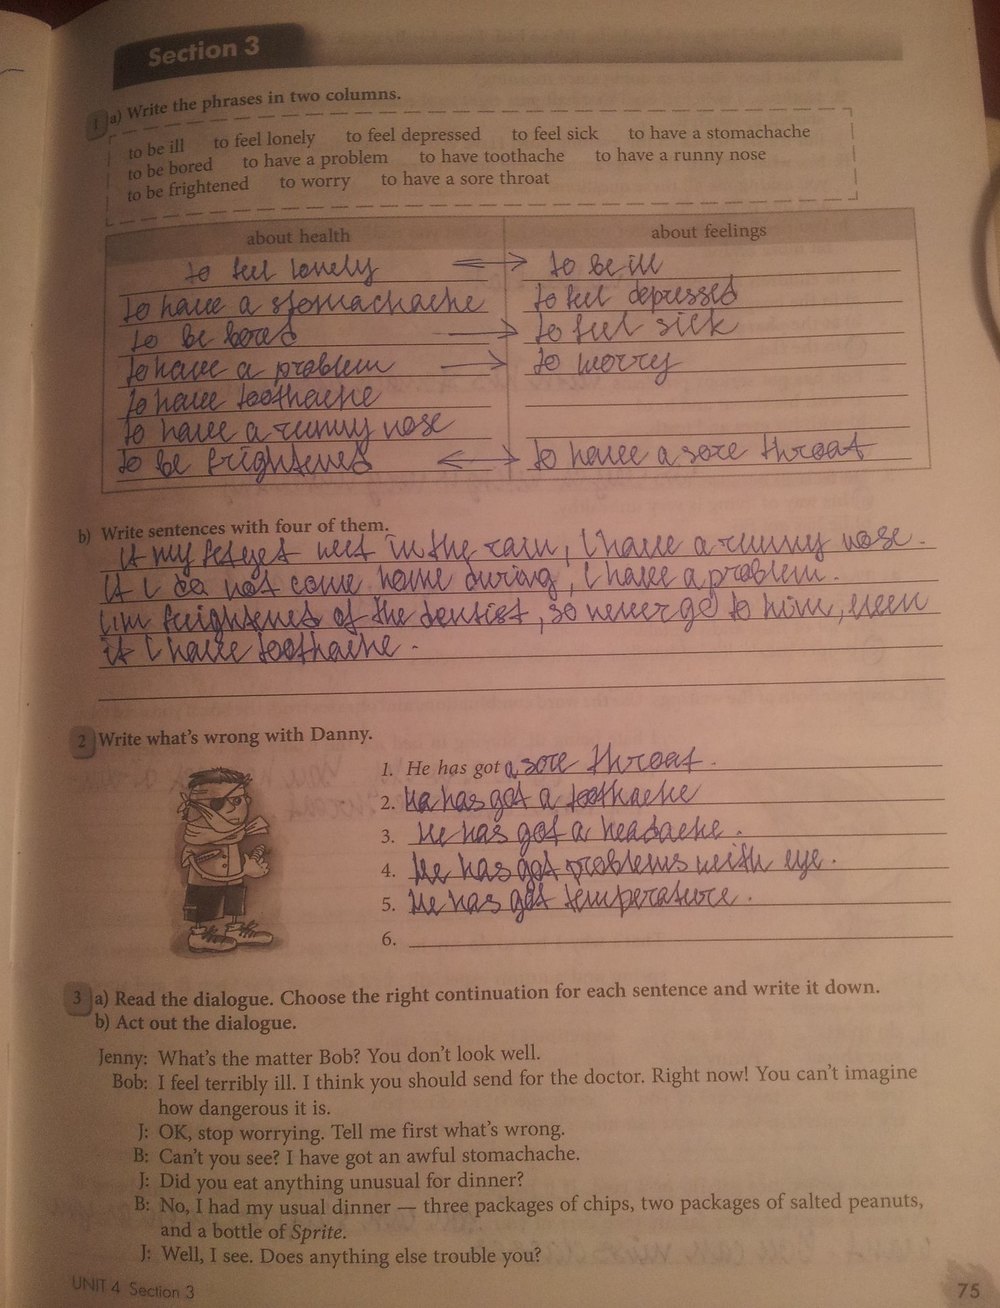 Section 3
1 a) Write the phrases in two columns.
to be ill to feel lonely to feel depressed to feel sick to have a stomachache
to be bored to have a problem to have toothache to have a runny nose
to be frightened to worry to have a sore throat
about health about feelings
to feel lonely ⟷ to be ill
to have a stomachache to feel depressed
to be bored → to feel sick
to have a problem → to worry
to have toothache
to have a runny nose
to be frightened ⟷ to have a sore throat
b) Write sentences with four of them.
If my get wet in the rain, I have a runny nose.
If I do not come home during, I have a problem.
I'm frightened of the dentist, so never go to him, even
if I have toothache.
2 Write what's wrong with Danny.
1. He has got a sore throat.
2. He has got a toothache
3. He has got a headache.
4. He has got problems with eye.
5. He has got temperature.
6.
3 a) Read the dialogue. Choose the right continuation for each sentence and write it down.
b) Act out the dialogue.
Jenny: What's the matter Bob? You don't look well.
Bob: I feel terribly ill. I think you should send for the doctor. Right now! You can't imagine
how dangerous it is.
J: OK, stop worrying. Tell me first what's wrong.
B: Can't you see? I have got an awful stomachache.
J: Did you eat anything unusual for dinner?
B: No, I had my usual dinner — three packages of chips, two packages of salted peanuts,
and a bottle of Sprite.
J: Well, I see. Does anything else trouble you?
UNIT 4 Section 3 75